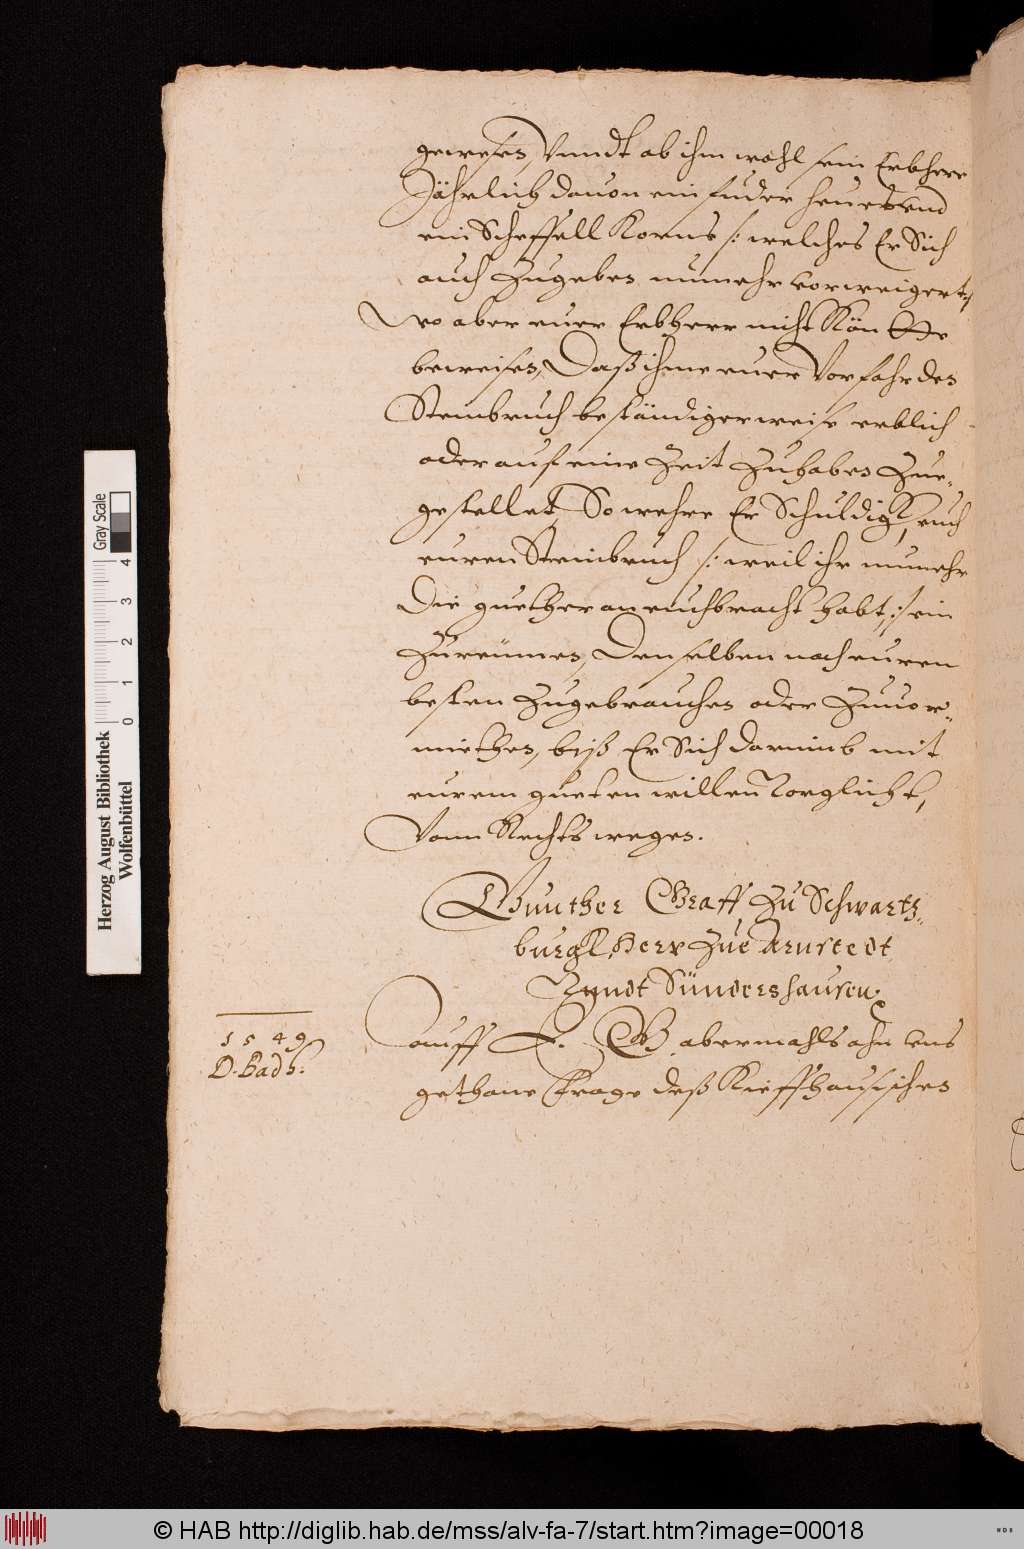 gewesen, Vnndt ob ihm wohl sein Erbherr
Jährlich dauon ein fuder heues vnd
ein Scheffell Korns /: welches Er Sich
auch Zugeben nunmehr vorweigert :/
Wo aber euer Erbherr nicht Kön
beweisen, Daß ihme euer Vorfahr den
Steinbruch beständigerweise erblich
oder auf eine Zeit Zuhaben Zue-
gestellet, So wehre Er Schuldig, euch
euren Steinbruch /: weil ihr nunmehr
Die guether an euch bracht habt, :/ ein
Zureümen, Denselben nach euren
besten Zugebrauchen oder Zuuor-
miethen, biß Er Sich darumb mit
eurem gueten willen Vorglicht,
Vonn Rechts wegen.
Gunther Graff Zu Schwartz-
burgk, Herr Zue Arnstedt
Vnndt Sündershausen.
1549
D. Badh.
auff E. G. abermahls ahn vns
gethane frage deß Kieffhausischen
Herzog August Bibliothek
Wolfenbüttel
Gray Scale
0 1 2 3 4
© HAB http://diglib.hab.de/mss/alv-fa-7/start.htm?image=00018